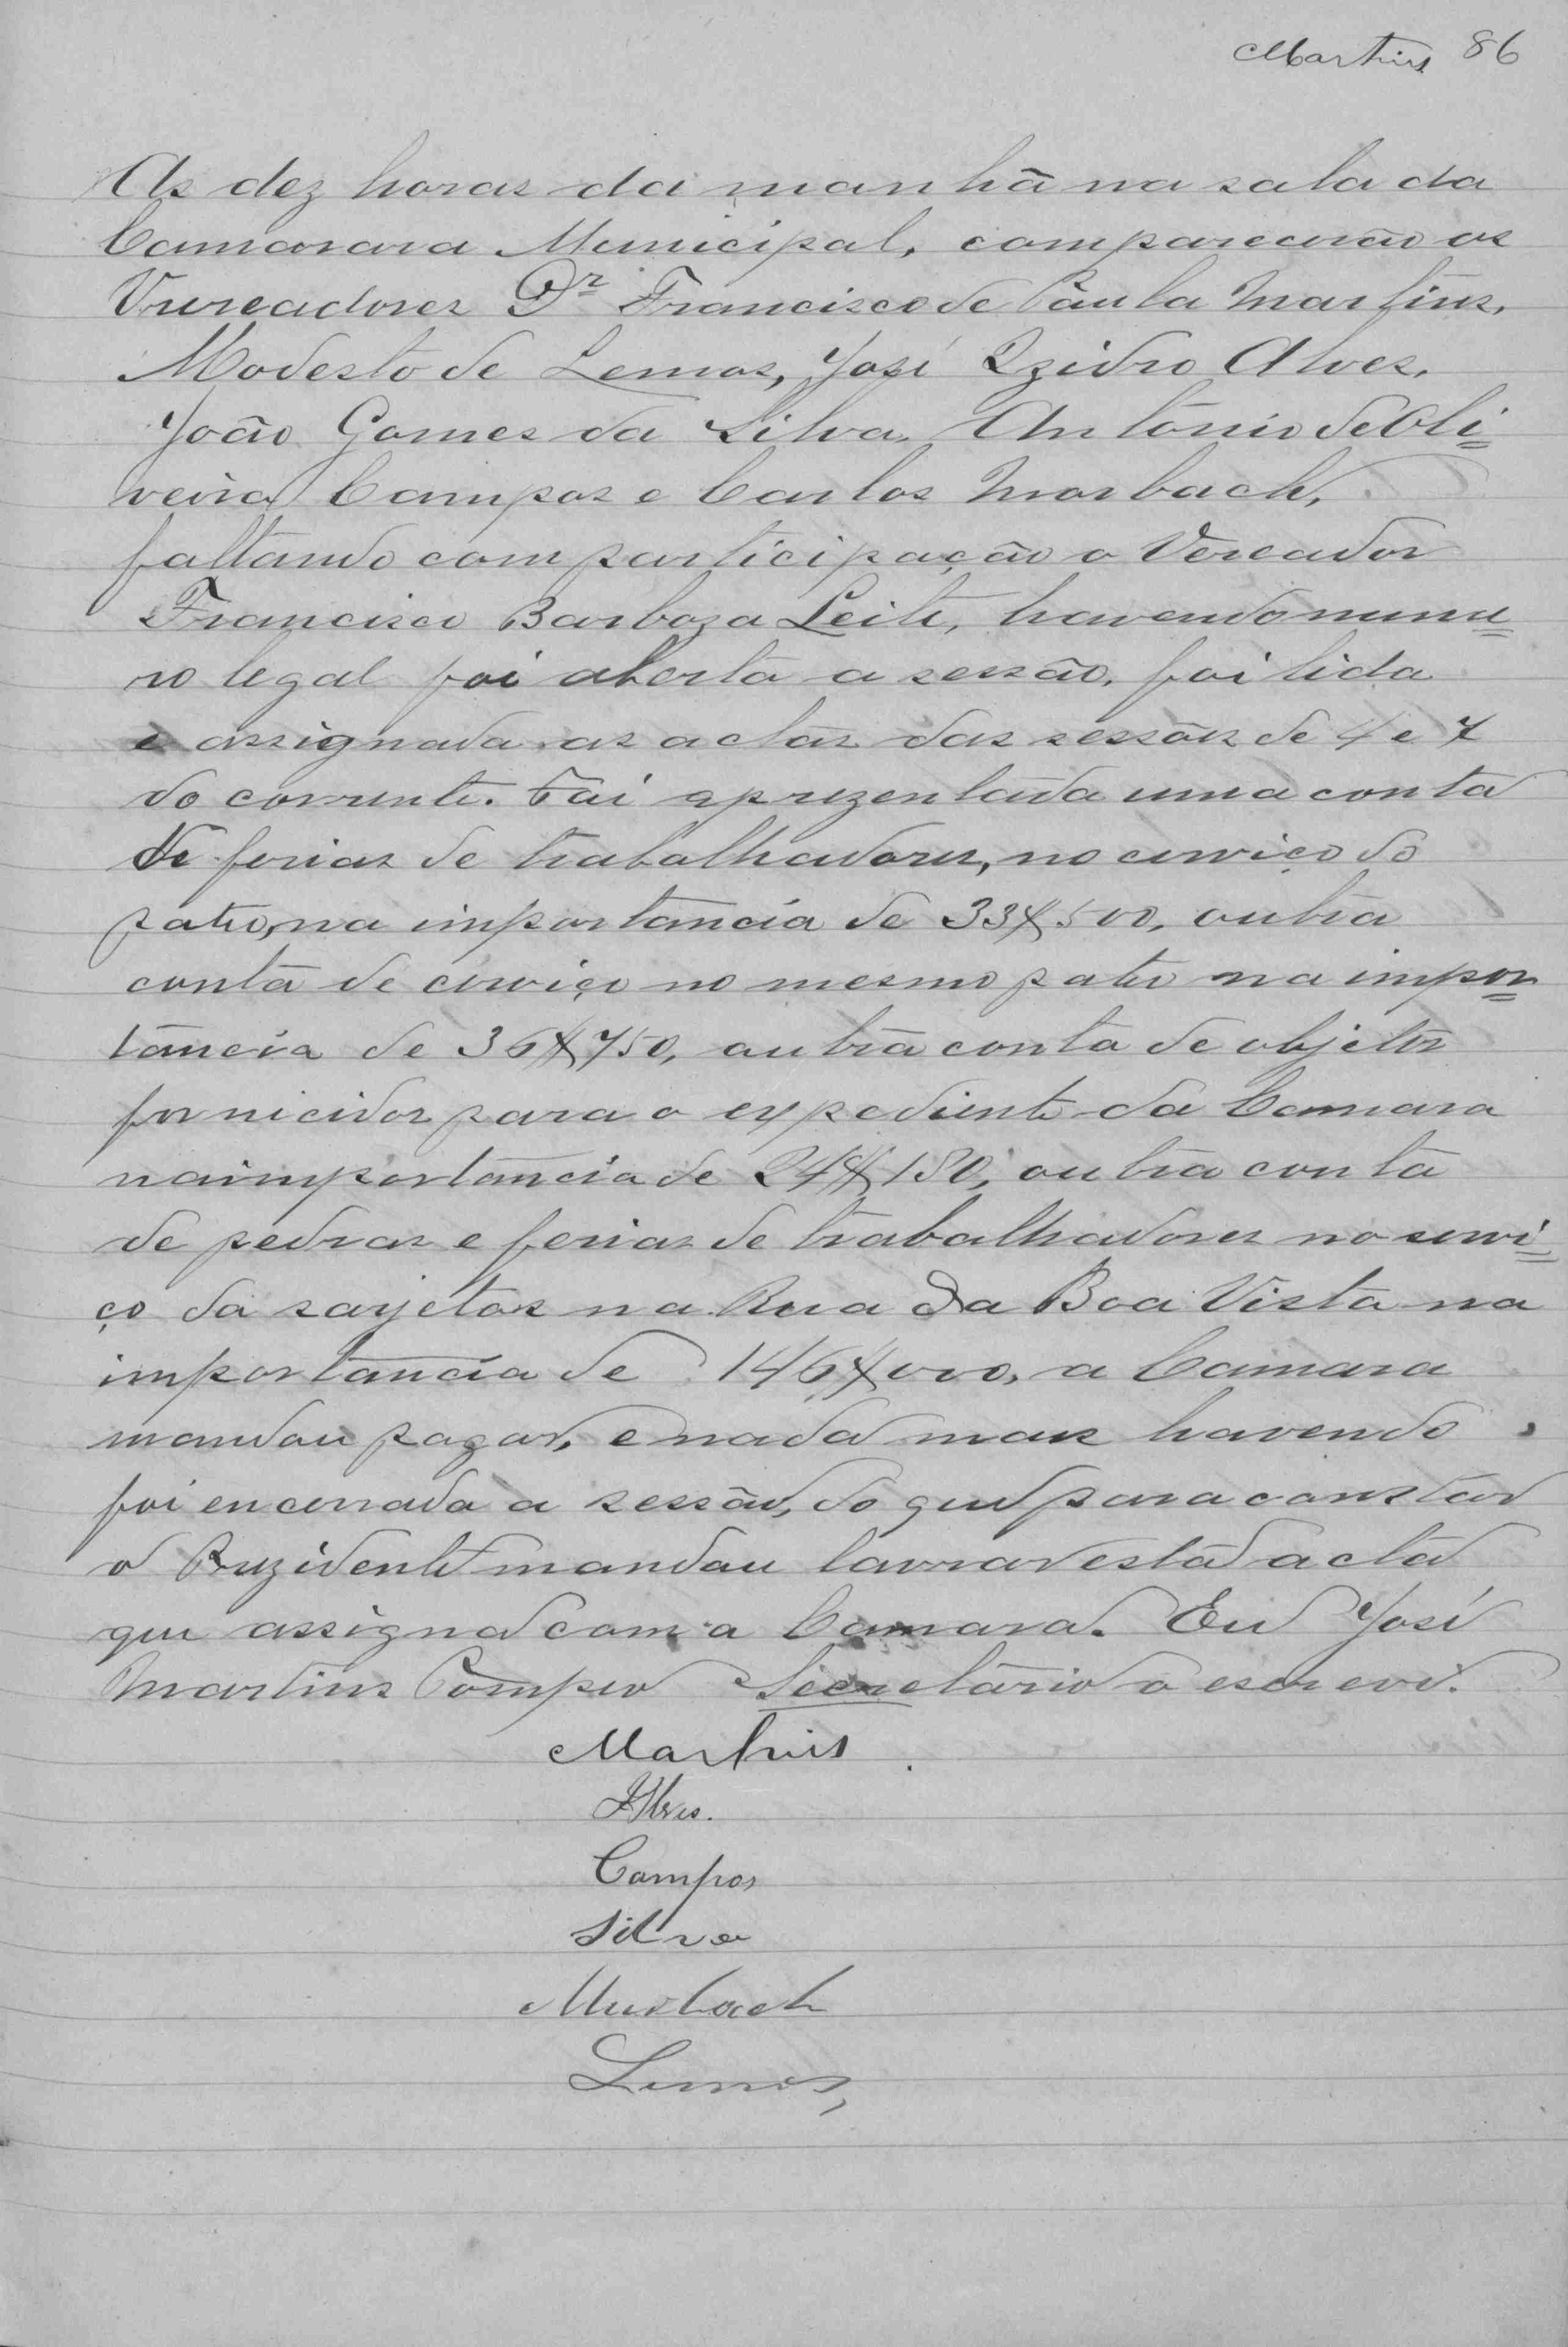 Martins 86
As dez horas da manhã na sala da
Camarara Municipal, comparecerão os
Vereadores Dr Francisco de Paula Martins,
Modesto de Lemos, José Izidro Alves,
João Gomes da Silva, Antonio de Oli=
veira Campos e Carlos Morbach,
faltando com participação o Vereador
Francisco Barboza Leite, havendo nume=
ro legal foi aberta a sessão, foi lida
e assignada as actas das sessões de 4 e 7
do corrente. Foi aprezentada uma conta
de ferias de trabalhadores, no cerviço do
pateo, na importancia de 33$500, outra
conta de cerviço no mesmo pateo na impor=
tancia de 36$750, outra conta de objetos
fornicidos para o expediente da Camara
na importancia de 24$180, outra conta
de pedras e ferias de trabalhadores no servi=
ço da sarjetas na Rua da Boa Vista na
importancia de 146$000, a Camara
mandou pagar, e nada mais havendo
foi encerrada a sessão, do que para constar
o Prezidente mandou lavrar esta acta
que assigna com a Camara. Eu José
Martins Pompeo Secretario o escrevi.
Martins
Alves.
Campos
Silva
Murbach
Lemos,